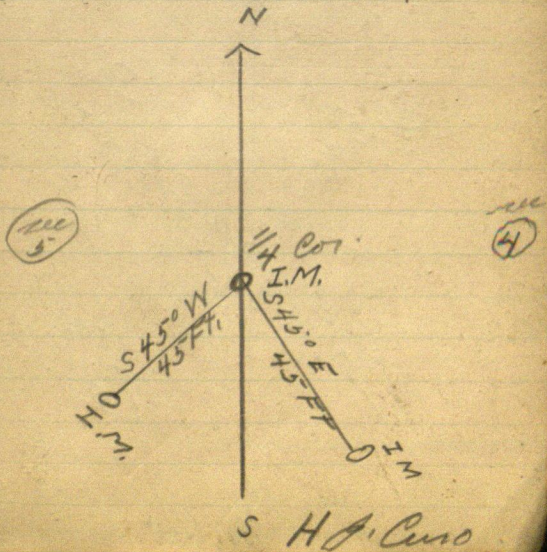 N
sec
5
sec
4
1/4 Cor.
I.M.
S 45° W
45 Ft.
S 45° E
45 Ft
I.M.
I M
S
H J.